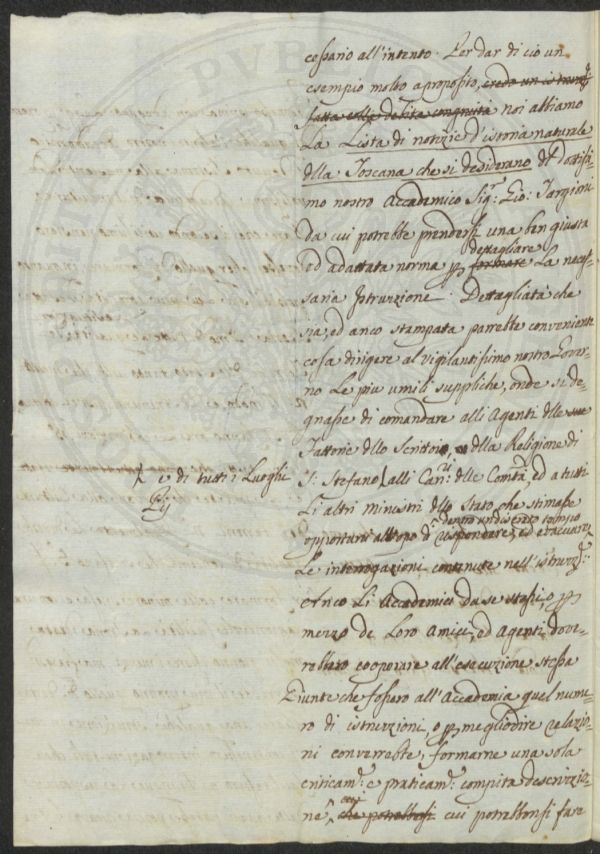 cessario all'intento. Per dar di ciò un
esempio molto aproposito, credo un istruz.e
fatta colle debita congruità noi abbiamo
La Lista di notizie d'istoria naturale
dlla Toscana che si desiderano dl Dottissi-
mo nostro Accademico Sig.r Gio: Targioni
da cui potrebbe prendersi una ben giusta
dettagliare
ed adattata norma p formare La neces-
saria Istruzione. Dettagliata che
sia, ed anco stampata parrebbe conveniente
cosa dirigere al vigilantissimo nostro Gover-
no Le più umili suppliche, onde si de-
gnasse di comandare alli Agenti dlle sue
Fattorie dllo Scrittoio, dlla Religione di
e di tutti i Luoghi
Pij
S: Stefano alli Can.ri dlle Comtà, ed a tutti
Li altri ministri dllo Stato che stimasse
dentro un discreto tempo
opportuni all'opo di rispondere, ed evacuare
Le interrogazioni contenute nell'istruz.e:
Anco Li Accademici da se stessi, o p
mezzo de Loro Amici, ed Agenti dove-
rebbero cooperare all'esecuzione stessa
Giunte che fossero all'Accademia quel nume-
ro di istruzioni, o p meglio dire relazio-
ni converrebbe, formarne una sola
criticam.e e praticam.e compita descrizio-
ne, che potrebbesi cui potrebbonsi fare